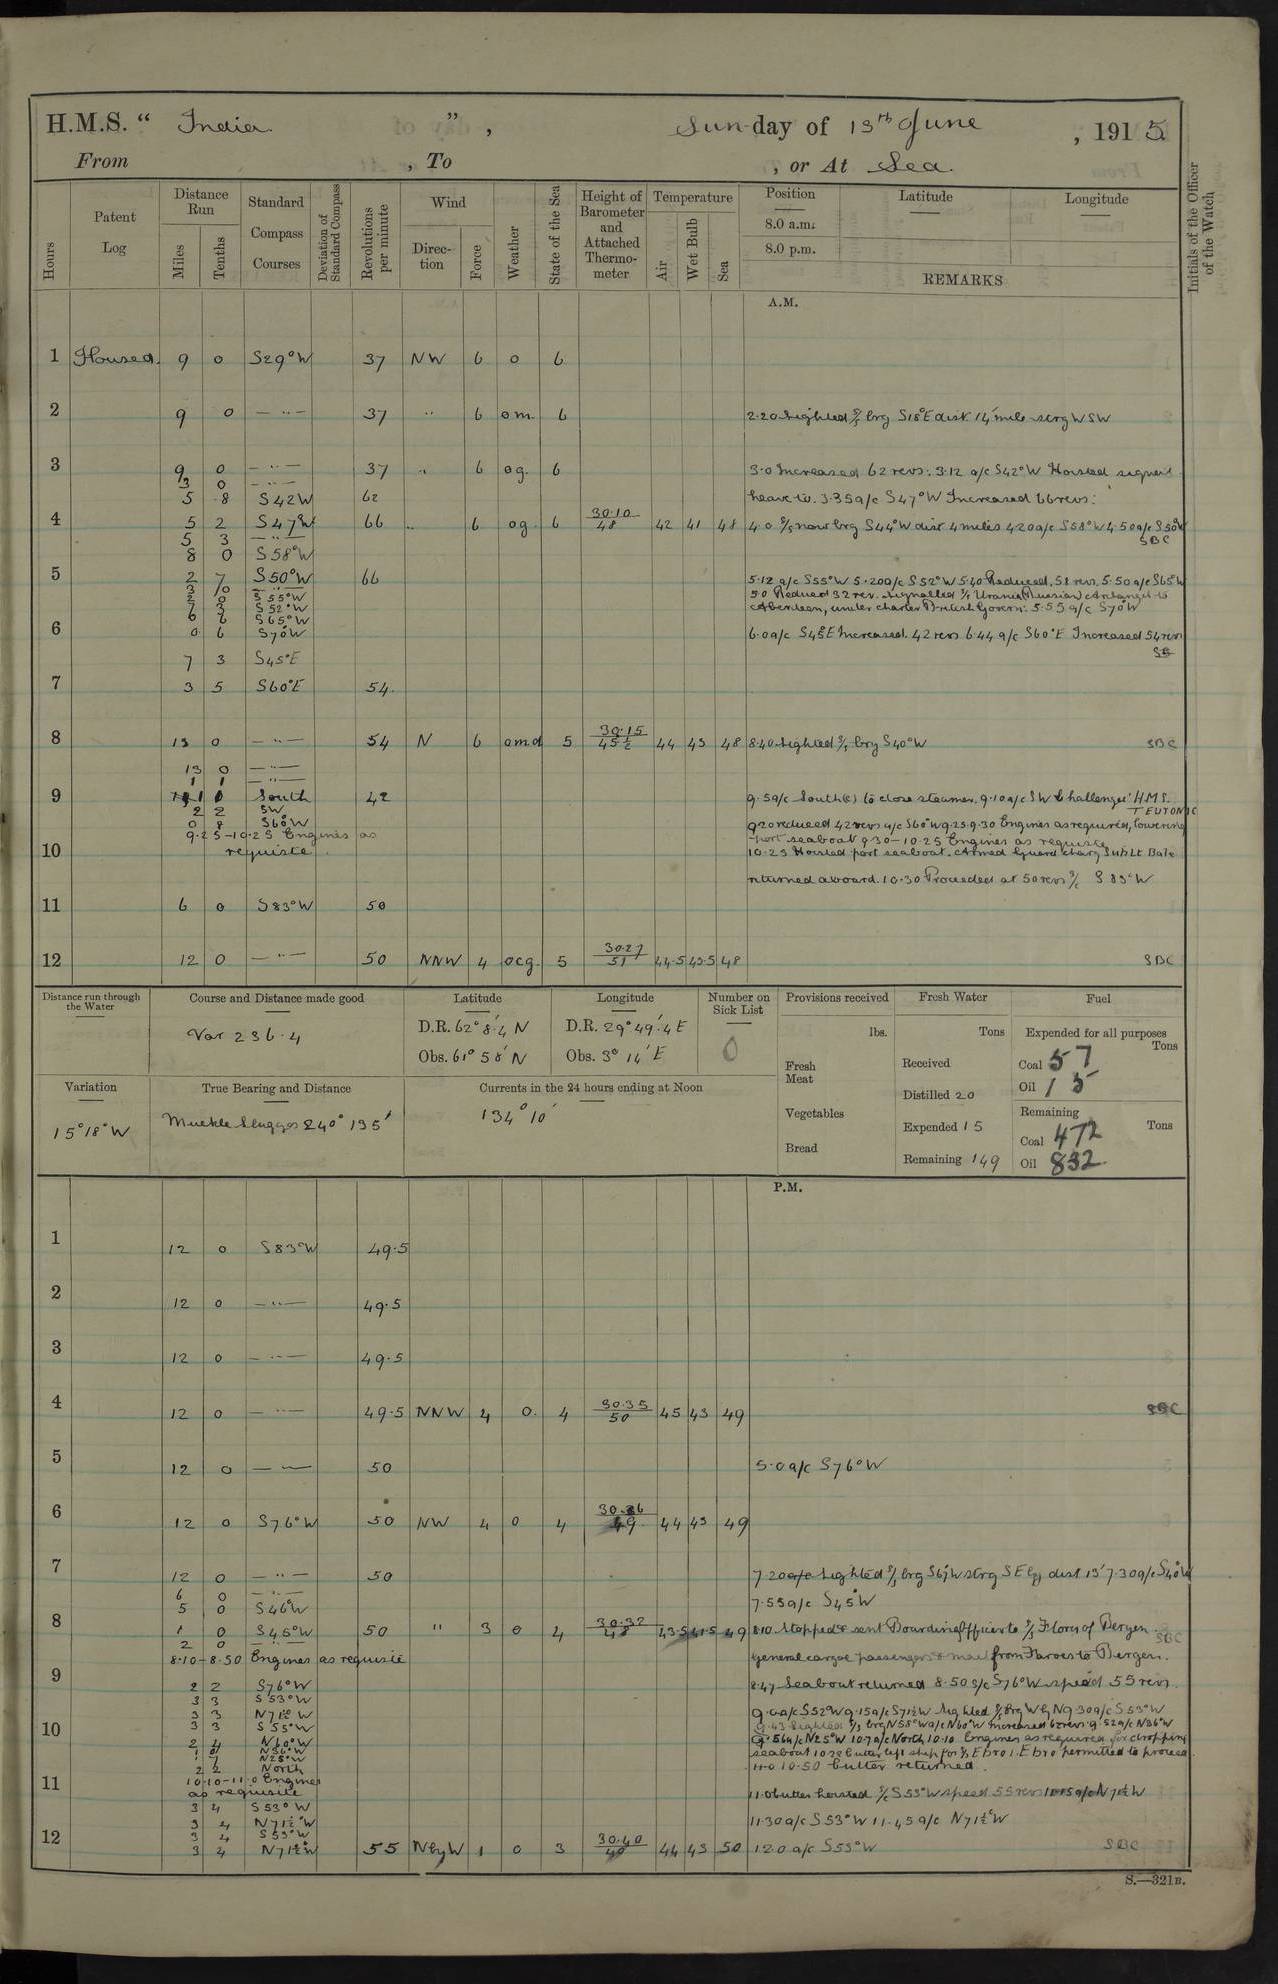 H.M.S. " India " , Sunday of 13th June , 1915
From , To , or At Sea.
Hours Patent Log Distance Run Miles Tenths Standard Compass Courses Deviation of Standard Compass Revolutions per minute Wind Direction Force Weather State of the Sea Height of Barometer and Attached Thermometer Temperature Air Wet Bulb Sea Position Latitude Longitude Initials of the Officer of the Watch
8.0 a.m.
8.0 p.m.
REMARKS
A.M.
1 Housed. 9 0 S29°W 37 NW 6 o 6
2 9 0 — " — 37 " 6 om. 6 2.20 Sighted S/S brg S18°E dist. 14 mile strg WSW
3 9 0 — " — 37 " 6 og. 6 3.0 Increased 62 revs: 3.12 a/c S42°W Hoisted signal
3 0 — " —
5 8 S42W 62 heave to. 3.35 a/c S47°W Increased 66 revs:
4 5 2 S47°W 66 " 6 og. 6 30.10/48 42 41 48 4.0 S/S now brg S44°W dist 4 miles 4.20 a/c S58°W 4.50 a/c S50°W
5 3 — " — SBC
8 0 S58°W
5 2 7 S50°W 66 5.12 a/c S55°W 5.20 a/c S52°W 5.40 Reduced. 58 revs. 5.50 a/c S65°W
S55°W 5.0 Reduced 32 rev. Signalled S/S Urania (Russian) Archangel to
7 3 S52°W Aberdeen, under charter British Govern: 5.55 a/c S70°W
6 6 S65°W
6 0 6 S70°W 6.0 a/c S45°E Increased. 42 revs 6.44 a/c S60°E Increased 54 revs
7 3 S45°E
7 3 5 S60°E 54.
8 13 0 — " — 54 N 6 omd 5 30.15/45½ 44 43 48 8.40 Sighted S/S brg S40°W SBC
13 0 — " —
1 1 — " —
9 South 42 9.5 a/c South(c) to close steamer. 9.10 a/c SW Challenger H.M.S. TEUTONIC
2 2 SW
0 8 S60°W 9.20 reduced 42 revs a/c S60°W 9.25-9.30 Engines as required, lowering
9.25-10.25 Engines as port seaboat 9.30-10.25 Engines as requisite
10 requisite 10.25 Hoisted port seaboat. Armed Guard charg Sub Lt Bale
returned aboard. 10.30 Proceeded at 50 revs S/C S83°W
11 6 0 S83°W 50
12 12 0 — " — 50 NNW 4 ocg. 5 30.27/51 44.5 43.5 48 SBC
Distance run through the Water Course and Distance made good Latitude Longitude Number on Sick List Provisions received Fresh Water Fuel
Var 236.4 D.R. 62° 8'.4 N D.R. 29° 49'.4 E 0 lbs. Tons Expended for all purposes Tons
Obs. 61° 58' N Obs. 3° 14' E Fresh Meat Received Coal 57
Oil 15
Variation True Bearing and Distance Currents in the 24 hours ending at Noon Distilled 20
15°18'W Muckle Flugga 240° 135' 134° 10' Vegetables Expended 15 Remaining Tons
Coal 472
Bread Remaining 149 Oil 832
P.M.
1 12 0 S83°W 49.5
2 12 0 — " — 49.5
3 12 0 — " — 49.5
4 12 0 — " — 49.5 NNW 4 o. 4 30.35/50 45 43 49 SBC
5 12 0 — " — 50 5.0 a/c S76°W
6 12 0 S76°W 50 NW 4 o 4 30.36/49 44 43 49
7 12 0 — " — 50 7.20 Sighted S/S brg S67W strg SEly dist 13' 7.30 a/c S40°W
6 0 — " —
5 0 S46°W 7.55 a/c S45°W
8 1 0 S45°W 50 " 3 o 4 30.32/48 43.5 41.5 49 8.10 Stopped & sent Boarding Officer to S/S Flores of Bergen.
2 0 — " — SBC
8.10-8.50 Engines as requisite General cargoe passengers & mail from Faroes to Bergen.
9 2 2 S76°W 8.47 Seaboat returned 8.50 S/C S76°W speed 55 revs.
3 3 S53°W
3 3 N71½°W 9.0 a/c S52°W 9.15 a/c S71½W Sighted S/S Brg W by N 9.30 a/c S53°W
10 3 3 S55°W 9.43 Sighted S/S brg N58°W a/c N60°W Increased 62 revs. 9.52 a/c N36°W
2 4 N60°W 9.56 a/c N25°W 10.7 a/c North 10.10 Engines as required for dropping
N36°W
1 7 N25°W seaboat 10.28 Cutter left ship for S/S Ebro. Ebro permitted to proceed
2 2 North 10.50 Cutter returned.
10.10-11.0 Engines
11 as requisite 11.0 Cutter hoisted S/C S53°W speed 55 revs 11.15 a/c N71½W
3 4 S53°W
3 4 N71½°W 11.30 a/c S53°W 11.45 a/c N71½°W
3 4 S53°W
12 3 4 N71½W 55 NbyW 1 o 3 30.40/49 44 43 50 12.0 a/c S53°W SBC
S.—321B.